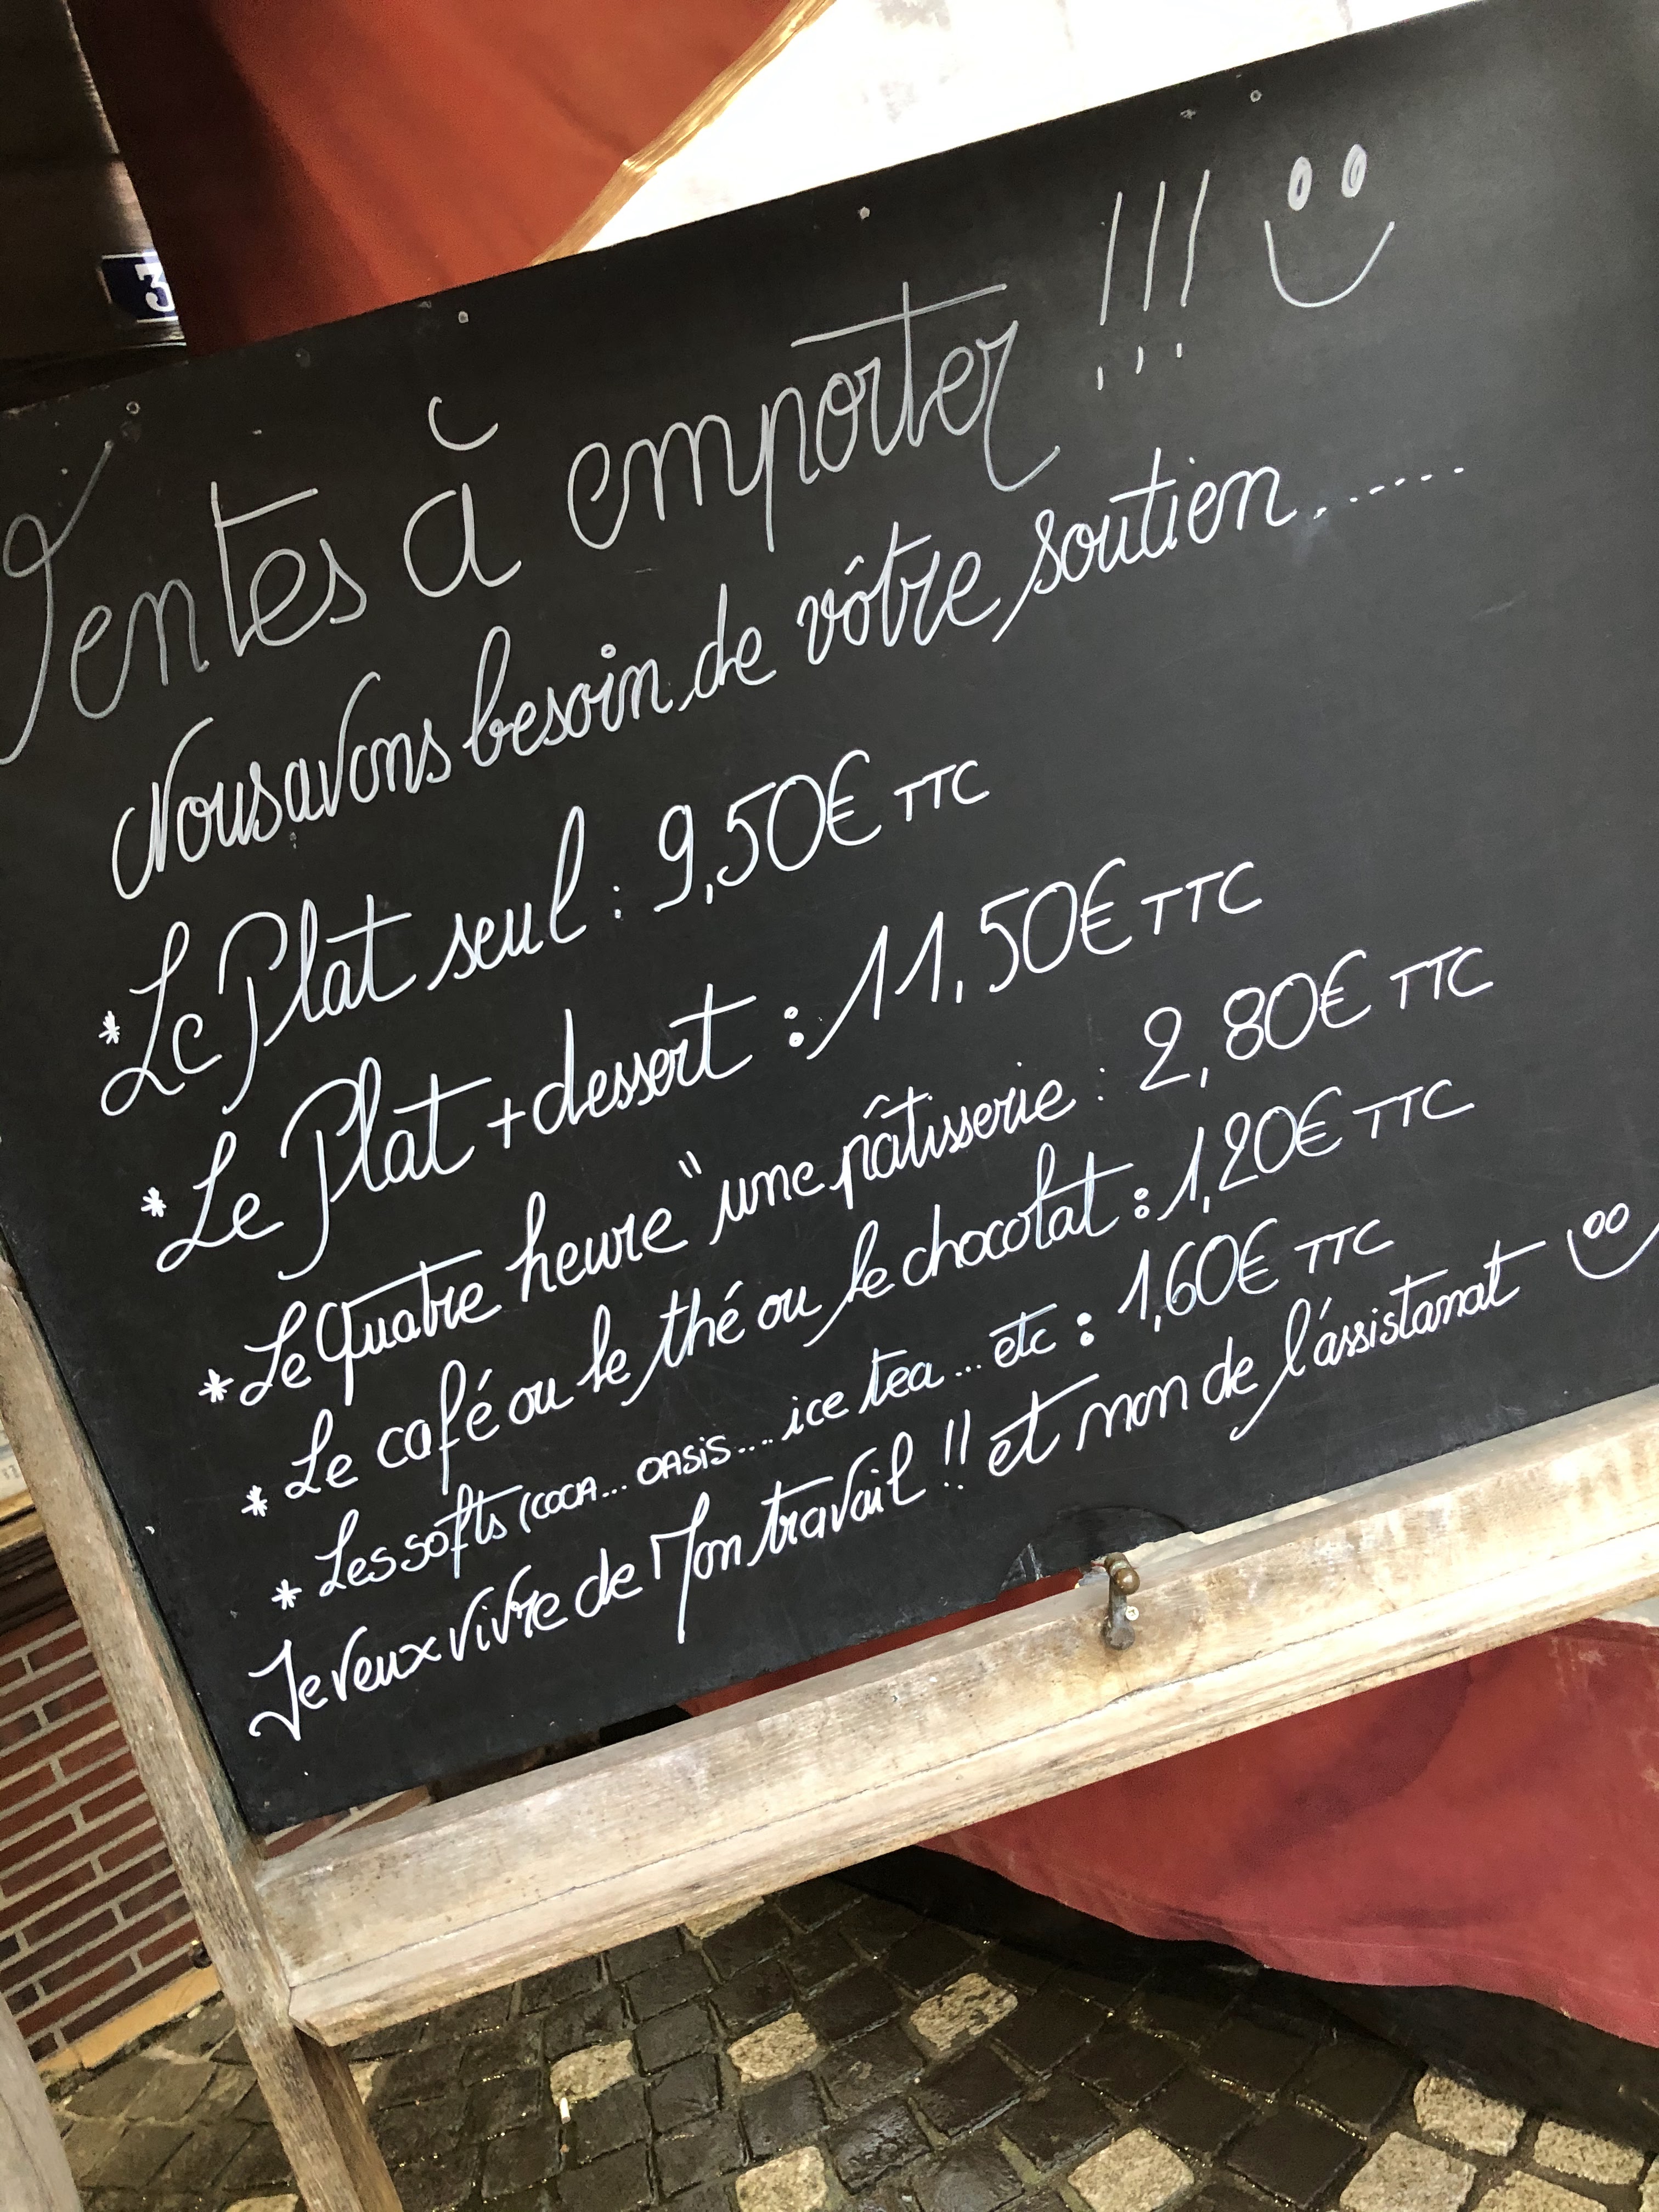 3
Ventes à emporter !!!
Nous avons besoin de vôtre soutien.......
* Le Plat seul : 9,50€ TTC
* Le Plat + dessert : 11,50€ TTC
* Le Quatre heure " une pâtisserie : 2,80€ TTC
* Le café ou le thé ou le chocolat : 1,20€ TTC
* Les softs (COCA... OASIS.... ice tea... etc : 1,60€ TTC
Je veux vivre de Mon travail !! et non de l'assistanat